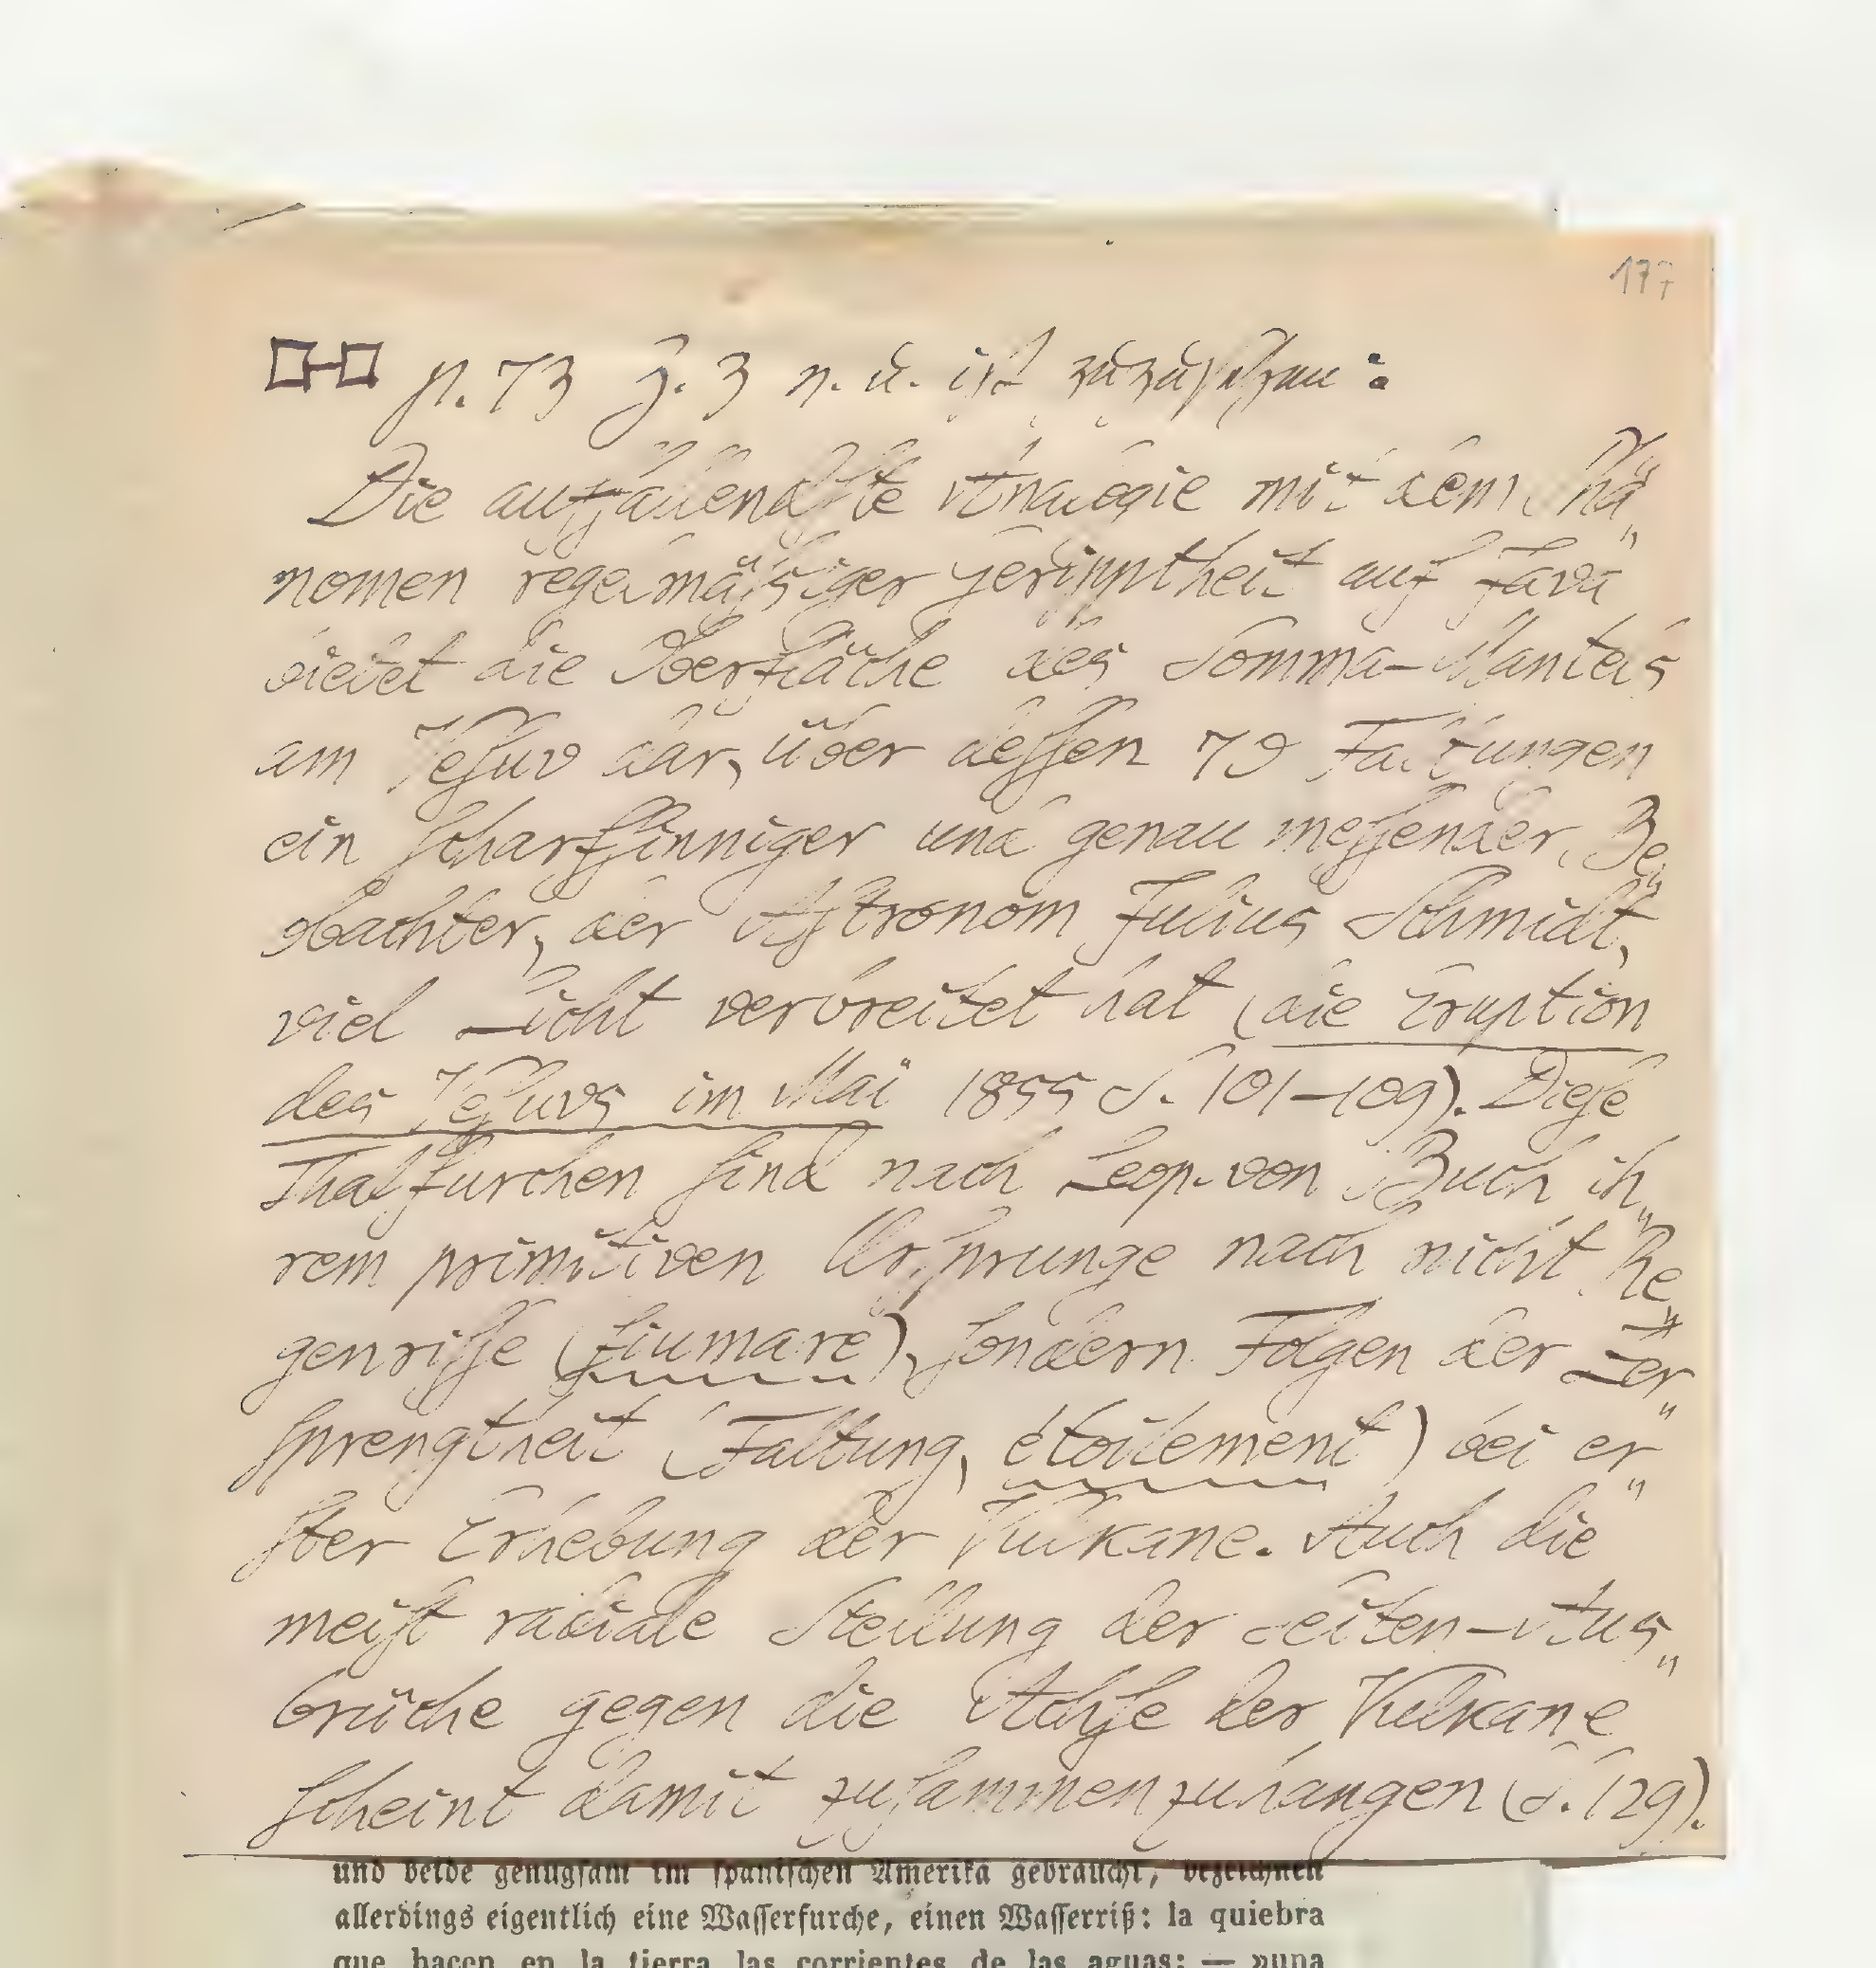 177
p. 73 Z. 3 v. u. ist zuzusetzen:
Die auffallendste Analogie mit dem Phä„
nomen regelmäßiger Geripptheit auf Java
bietet die Oberfläche des Somma-Mantels
am Vesuv dar, über dessen 70 Faltungen
ein scharfsinniger und genau messender Be„
obachter, der Astronom Julius Schmidt,
viel Licht verbreitet hat (die Eruption
des Vesuvs im Mai 1855 S. 101–109). Diese
Thalfurchen sind nach Leop. von Buch ih„
rem primitiven Ursprunge nach nicht Re„
genrisse (fiumare), sondern Folgen der Zer„
sprengtheit (Faltung, étoilement) bei er„
ster Erhebung der Vulkane. Auch die
meist radiale Stellung der Seiten-Aus„
brüche gegen die Achse der Vulkane
scheint damit zusammenzuhangen (S. 129).
und beide genugsam im spanischen Amerika gebraucht, bezeichnen
allerdings eigentlich eine Wasserfurche, einen Wasserriß: la quiebra
que hacen en la tierra las corrientes de las aguas; — »una